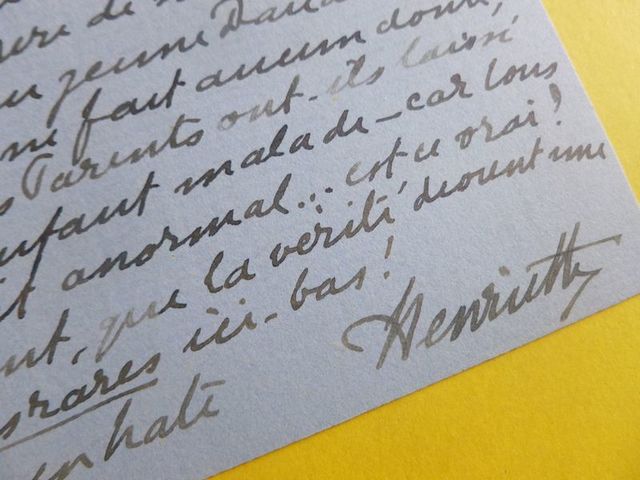 de
jeune
ne fait aucun doute,
Parents ont-ils laissé
enfant malade - car tous
anormal... est ce vrai!
que la vérité devient une
rares ici-bas!
en hate
Henriette